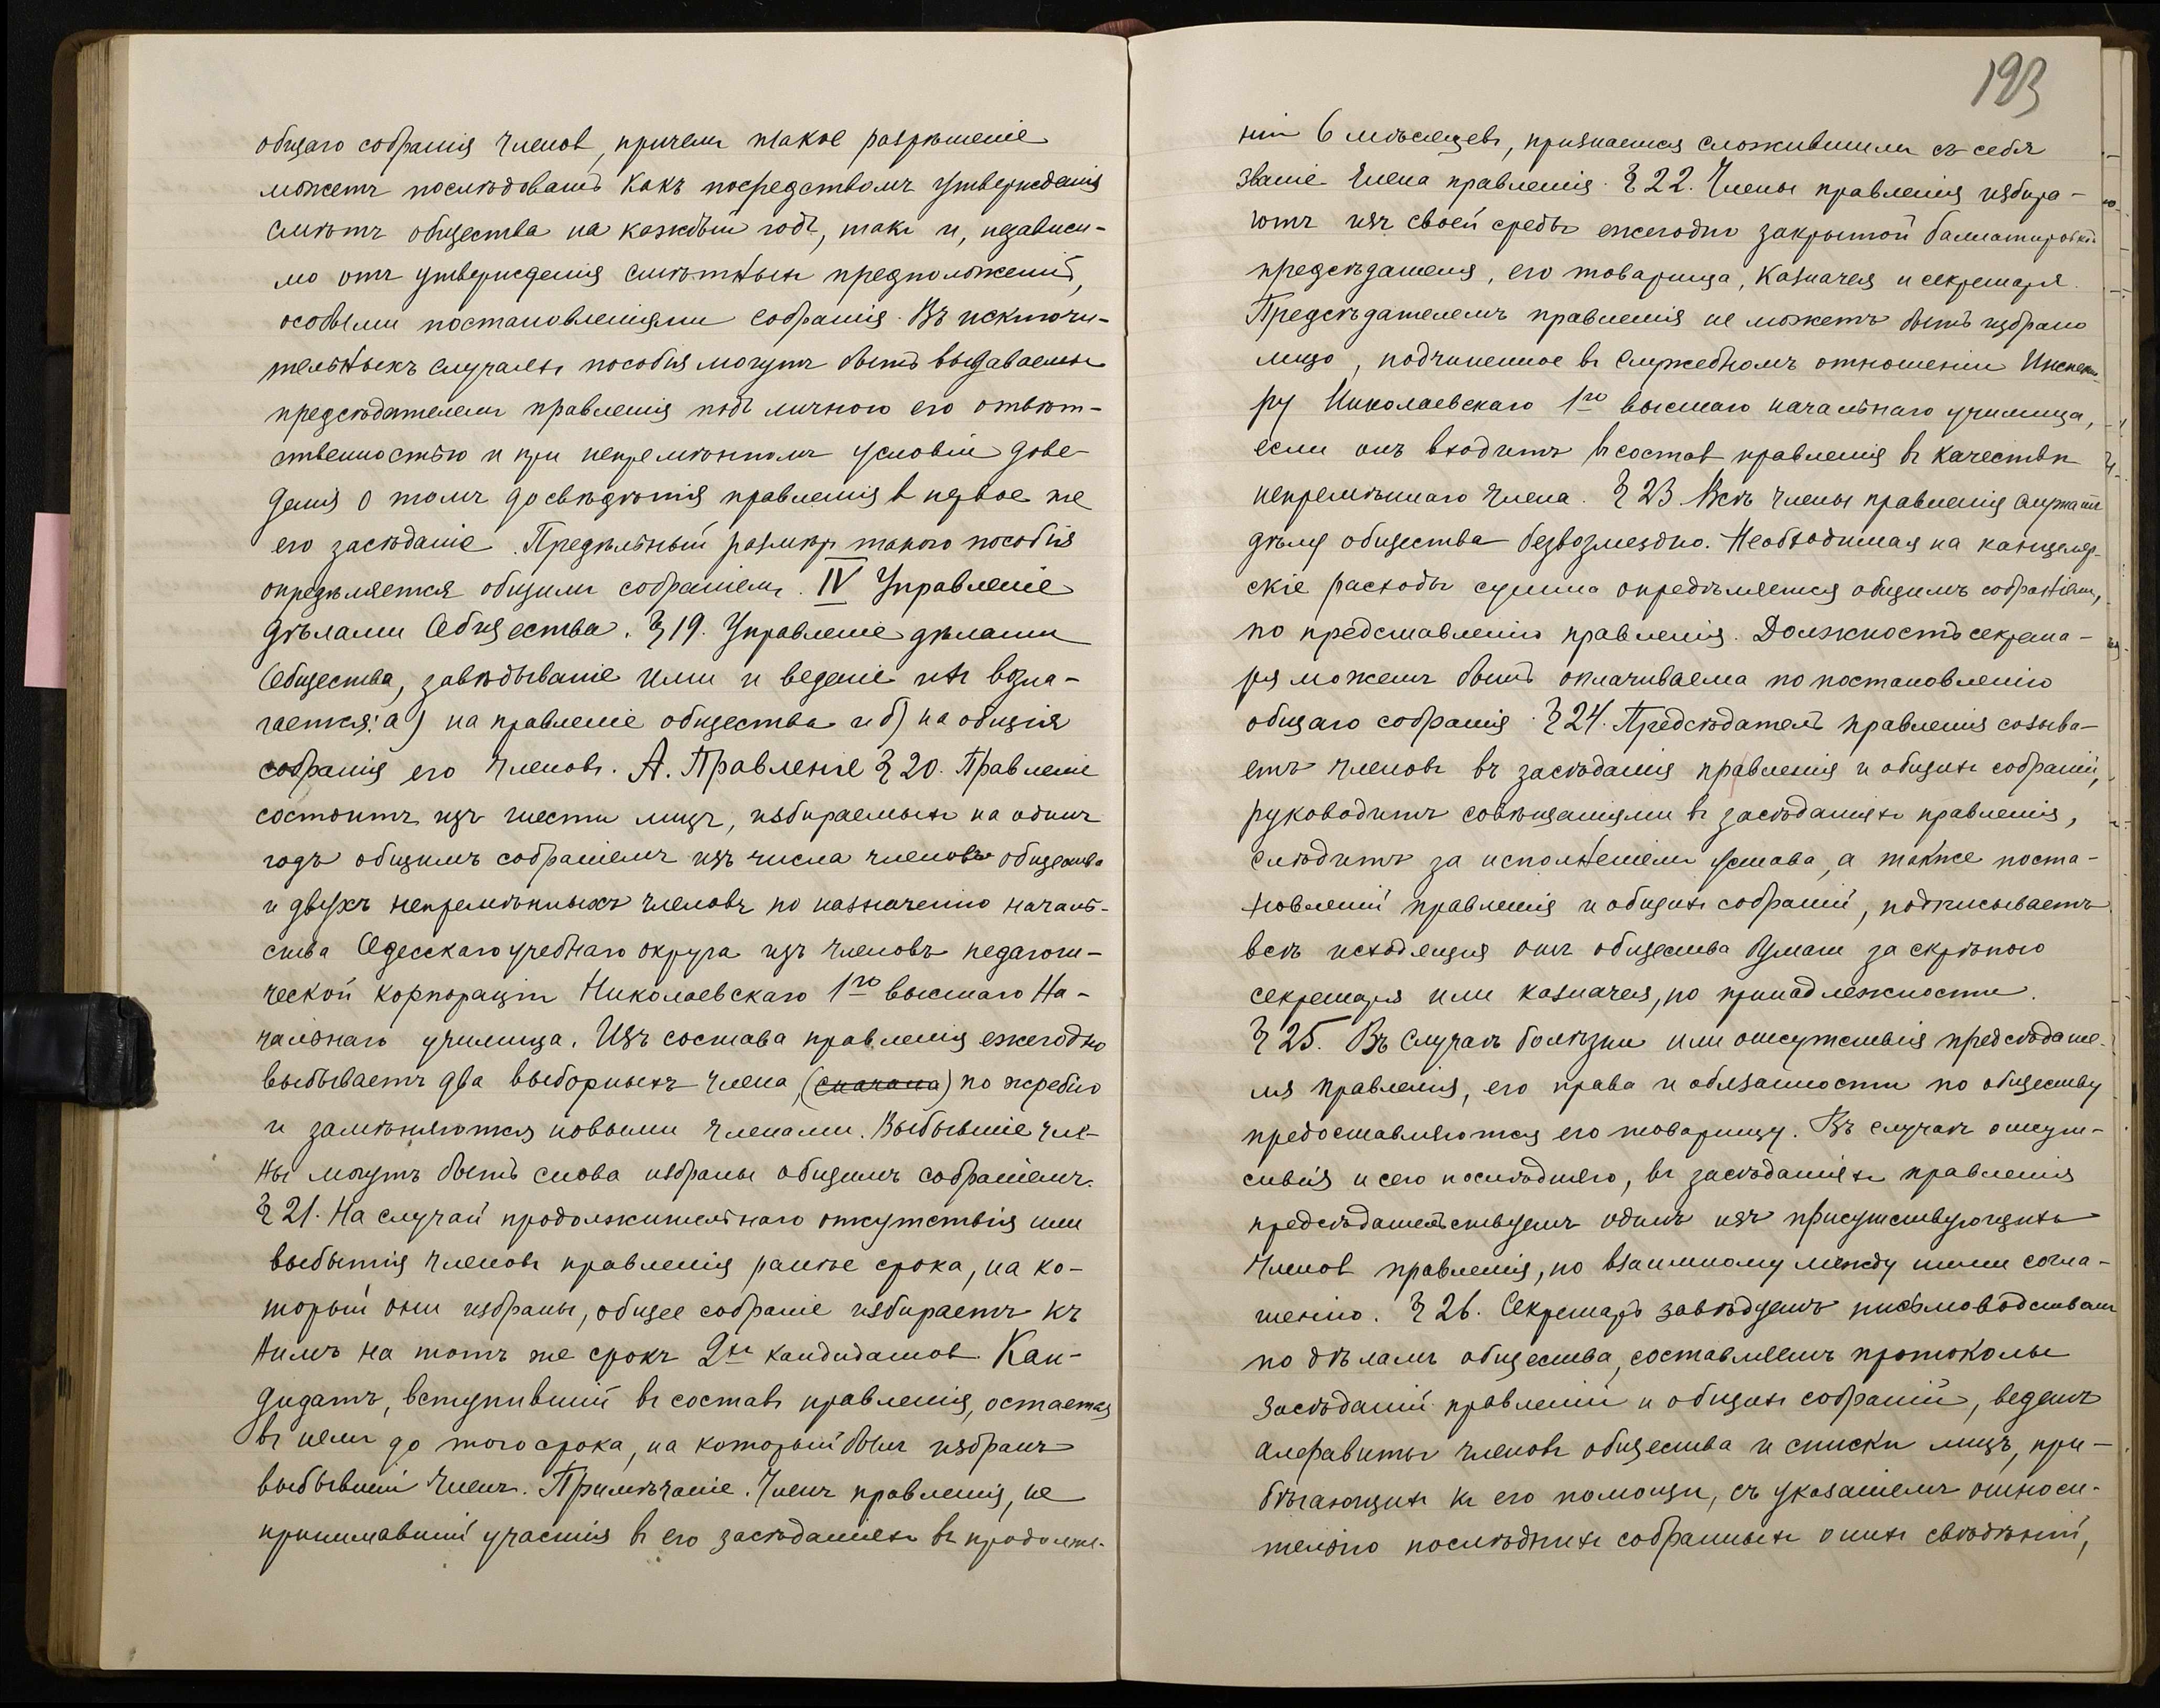 общаго собранія членовъ, причемъ такое разрѣшеніе
можетъ послѣдовать какъ посредствомъ утвержденія
смѣтъ общества на каждый годъ, такъ и, независи-
мо отъ утвержденія смѣтныхъ предположеній,
особыми постановленіями собранія. Въ исключи-
тельныхъ случаяхъ пособія могутъ быть выдаваемы
предсѣдателемъ правленія подъ личною его отвѣт-
ственностью и при непремѣнномъ условіи дове-
денія о томъ до свѣдѣнія правленія в первое же
его засѣданіе. Предѣльный размѣръ такого пособія
опредѣляется общимъ собраніемъ. IV Управленіе
дѣлами Общества. § 19. Управленіе дѣлами
Общества, завѣдываніе ими и веденіе ихъ возла-
гается: а) на правленіе общества и б) на общія
собранія его членовъ. А. Правленіе § 20. Правленіе
состоитъ изъ шести лицъ, избираемыхъ на одинъ
годъ общимъ собраніемъ изъ числа членовъ общества
и двухъ непремѣнныхъ членовъ по назначенію началь-
ства Одесскаго учебнаго округа изъ членовъ педагоги-
ческой корпораціи Николаевскаго 1го высшаго На-
чальнаго училища. Изъ состава правленія ежегодно
выбываетъ два выборныхъ члена, (сначала) по жребію
и замѣняются новыми членами. Выбывшіе чле-
ны могутъ быть снова избраны общимъ собраніемъ.
§ 21. На случай продолжительнаго отсутствія или
выбытія членовъ правленія ранѣе срока, на ко-
торый они избраны, общее собраніе избираетъ къ
нимъ на тотъ же срокъ 2хъ кандидатов. Кан-
дидатъ, вступившій въ составъ правленія, остается
въ немъ до того срока, на который былъ избранъ
выбывшій членъ. Примѣчаніе. Членъ правленія, не
принимавшій участія въ его засѣданіяхъ въ продолже-
193
ніи 6 мѣсяцевъ, признается сложившимъ съ себя
званіе члена правленія. § 22. Члены правленія избира-
ютъ изъ своей среды ежегодно закрытой баллатировкой
предсѣдателя, его товарища, казначея и секретаря.
Предсѣдателемъ правленія не можетъ быть избрано
лицо, подчиненное въ служебномъ отношеніи Инспекто-
ру Николаевскаго 1го высшаго начальнаго училища,
если онъ входитъ въ состав правленія въ качествѣ
непремѣннаго члена. § 23. Всѣ члены правленія служатъ
дѣлу общества безвозмездно. Необходимая на канцеляр-
скіе расходы сумма опредѣляется общимъ собраніемъ,
по представленію правленія. Должность секрета-
ря можетъ быть оплачиваема по постановленію
общаго собранія. § 24. Предсѣдатель правленія созыва-
етъ членовъ въ засѣданія правленія и общихъ собраній,
руководитъ совѣщаніями въ засѣданіяхъ правленія,
слѣдитъ за исполненіемъ устава, а также поста-
новленій правленія и общихъ собраній, подписываетъ
всѣ исходящія отъ общества бумаги за скрѣпою
секретаря или казначея, по принадлежности.
§ 25. Въ случаѣ болѣзни или отсутствія предсѣдате-
ля правленія, его права и обязанности по обществу
предоставляются его товарищу. Въ случаѣ отсут-
ствія и сего послѣдняго, въ засѣданіяхъ правленія
предсѣдательствуетъ одинъ изъ присутствующихъ
членов правленія, по взаимному между ними согла-
шенію. § 26. Секретарь завѣдуетъ письмоводствамъ
по дѣламъ общества, составляетъ протоколы
засѣданій правленій и общихъ собраній, ведетъ
алфавиты членовъ общества и списки лицъ, при-
бѣгающихъ къ его помощи, съ указаніемъ относи-
тельно послѣднихъ собранныхъ о нихъ свѣдѣній,